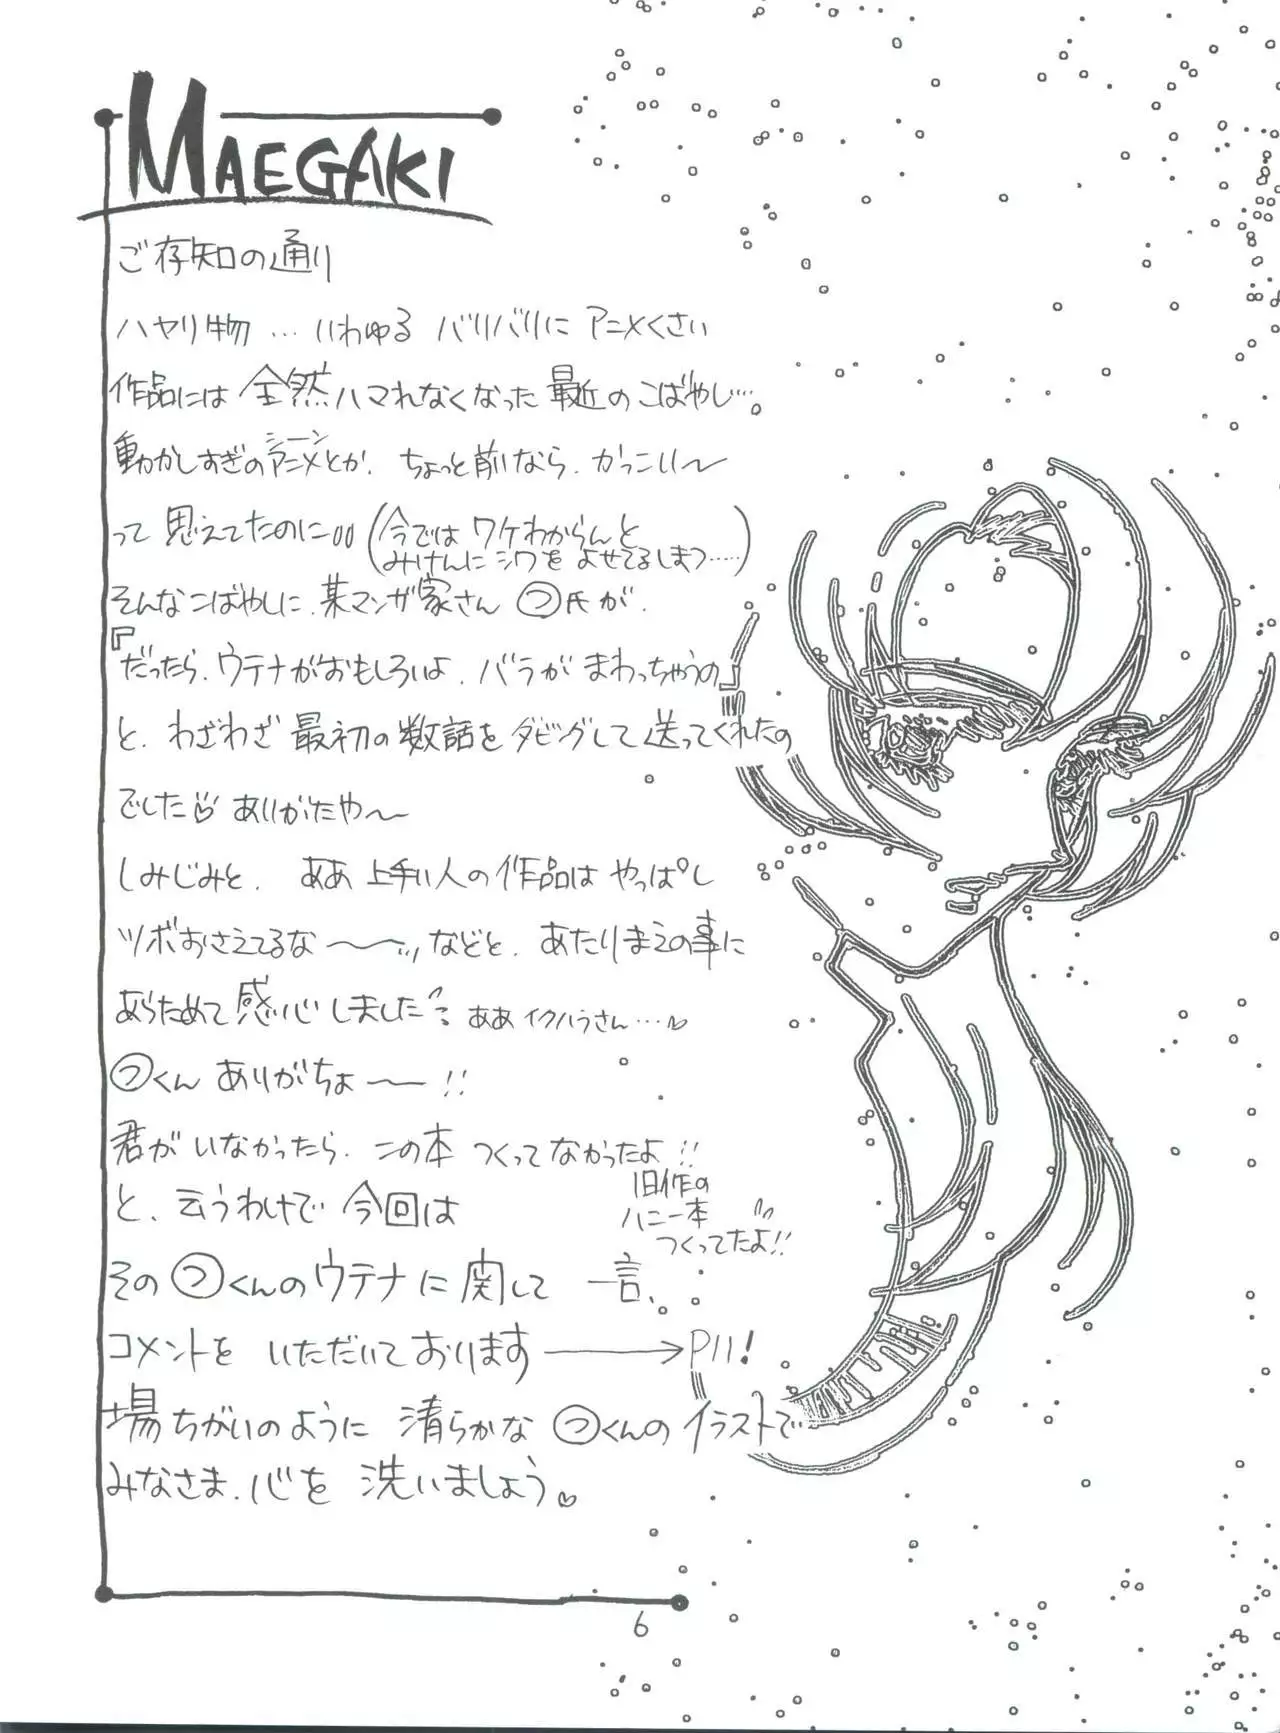 MAEGAKI
ご存知の通り
ハヤリ物…いわゆる バリバリに アニメくさい
作品には 全然ハマれなくなった 最近の こばやし…。
動かしすぎのシーン
アニメとか、ちょっと前なら、かっこい〜
って 思えてたのに (今では ワケわからんと
みけんに シワを よせてるしまつ……)
そんなこばやしに、某マンガ家さん つ氏が、
『だったら、ウテナがおもしろいよ、バラが まわっちゃうの』
と、わざわざ 最初の数話を ダビングして 送ってくれたの
でした♡ ありがたや〜
しみじみと、ああ 上手い人の 作品は やっぱし
ツボおさえてるな〜〜ッ などと、あたりまえの事に
あらためて 感心しました ああ イクハラさん…♡
つくん ありがちょ〜〜!!
君が いなかったら、この本 つくってなかったよ!!
旧作の
ハニー本
つくってたよ!!
と、云うわけで 今回は
その つくんのウテナに 関して 一言、
コメントを いただいております→P11!
場ちがいのように 清らかな つくんの イラストで
みなさま、心を 洗いましょう。♡
6